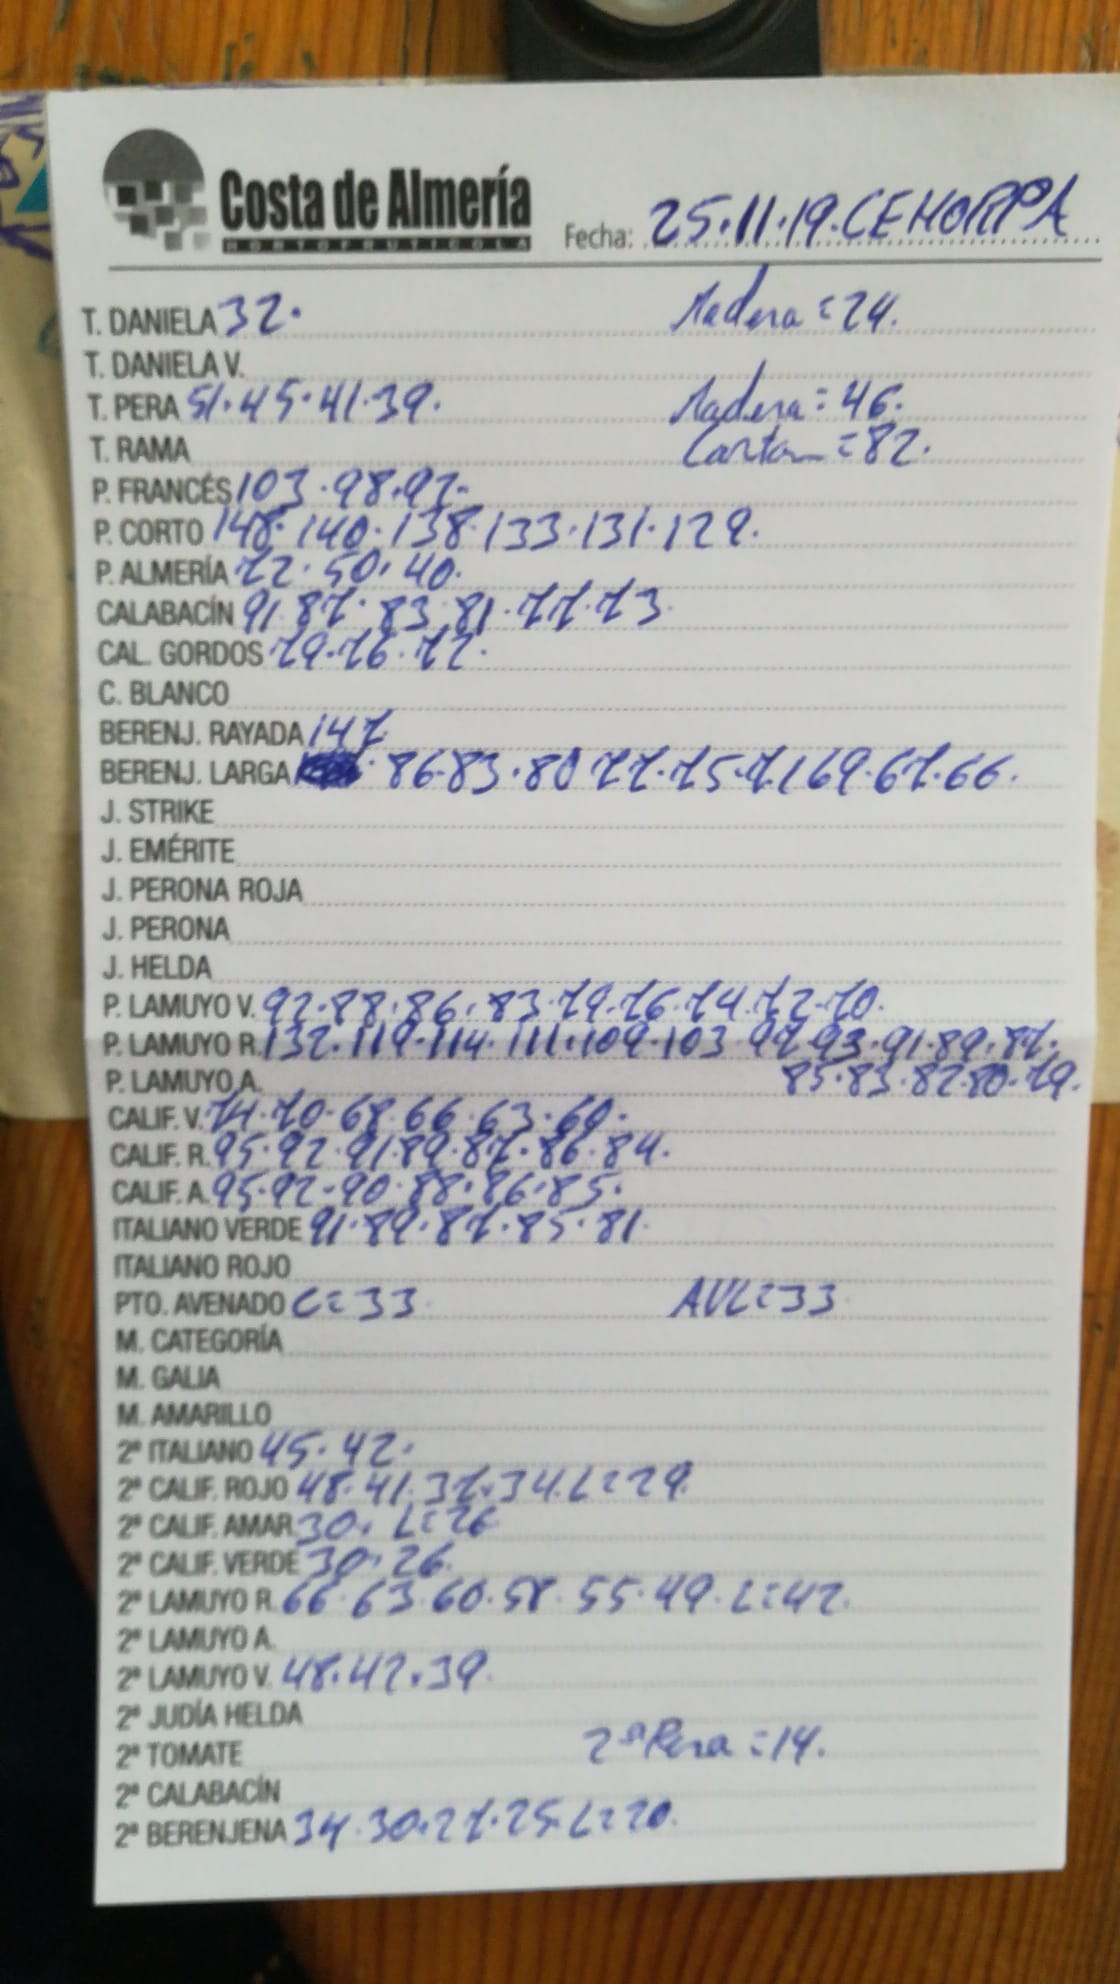 Costa de Almería
HORTOFRUTICOLA
Fecha: 25.11.19.CEHORPA
T. DANIELA 32. Madera=24.
T. DANIELA V.
T. PERA 51.45.41.39. Madera=46.
T. RAMA Carton=82.
P. FRANCÉS 103.98.97.
P. CORTO 148.140.138.133.131.129.
P. ALMERÍA 72.50.40.
CALABACÍN 91.87.83.81.77.73
CAL. GORDOS 79.76.72.
C. BLANCO
BERENJ. RAYADA 147
BERENJ. LARGA 86.83.80 77.75.71 69.67.66.
J. STRIKE
J. EMÉRITE
J. PERONA ROJA
J. PERONA
J. HELDA
P. LAMUYO V. 92.88.86.83.79.76.74.72.70.
P. LAMUYO R. 132.119.114.111.109.103 97.93.91.89.87.
P. LAMUYO A. 85.83.82.80.79.
CALIF. V. 74.70.68.66.63.60.
CALIF. R. 95.92.91.89.87.86.84.
CALIF. A. 95.92.90.88.86.85.
ITALIANO VERDE 91.89.87.85.81.
ITALIANO ROJO
PTO. AVENADO C=33 AVL=33
M. CATEGORÍA
M. GALIA
M. AMARILLO
2ª ITALIANO 45.42.
2ª CALIF. ROJO 48.41.37.34.L=29.
2ª CALIF. AMAR. 30. L=26
2ª CALIF. VERDE 30.26.
2ª LAMUYO R. 66.63.60.58.55.49.L=42.
2ª LAMUYO A.
2ª LAMUYO V. 48.42.39.
2ª JUDÍA HELDA
2ª TOMATE 2ª Pera=14.
2ª CALABACÍN
2ª BERENJENA 34.30.27.25.L=20.